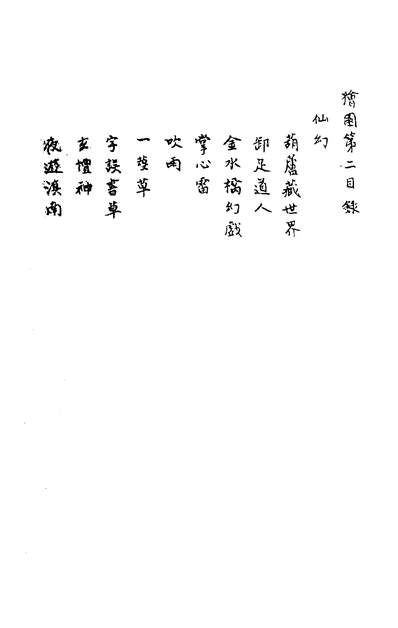 獪園第二目錄
仙幻
葫蘆藏世界
卸足道人
金水橋幻戲
掌心雷
吹雨
一莖草
字誤書草
玄禮神
夜遊滇南